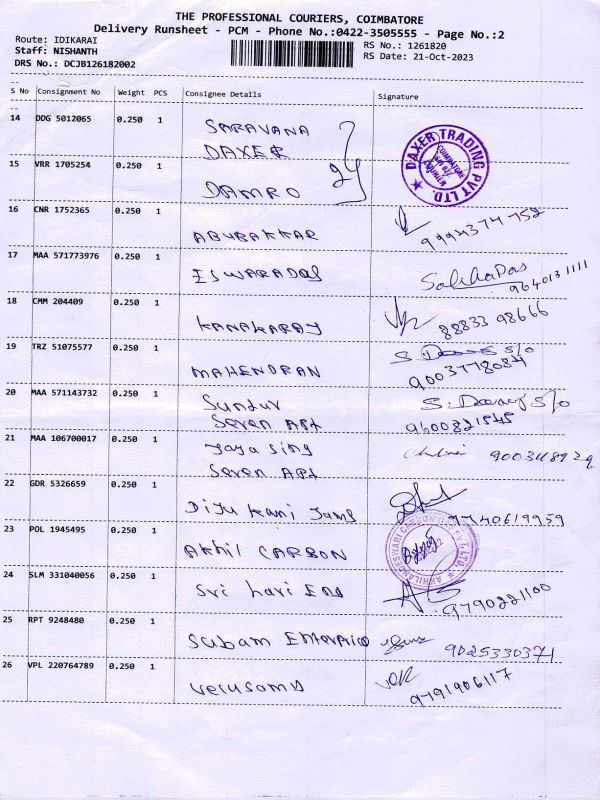 THE PROFESSIONAL COURIERS, COIMBATORE
Delivery Runsheet - PCM - Phone No.:0422-3505555 - Page No.:2
Route: IDIKARAI RS No.: 1261820
Staff: NISHANTH RS Date: 21-Oct-2023
DRS No.: DCJB126182002
S No Consignment No Weight PCS Consignee Details Signature
14 DDG 5012065 0.250 1 SARAVANA
DAXER
DAXER TRADING PVT LTD.
15 VRR 1705254 0.250 1 DAMRO
16 CNR 1752365 0.250 1 ABUBAKKAR 9994374752
17 MAA 571773976 0.250 1 ESWARADOS 9640131111
18 CMM 204409 0.250 1 KANAKARAJ 88833 98666
19 TRZ 51075577 0.250 1 MAHENDRAN S/o
9003778084
20 MAA 571143732 0.250 1 Sundur S/o
Seven Apt 9600821545
21 MAA 106700017 0.250 1 Jaya sing
Seven Apt
22 GDR 5326659 0.250 1 Diju kani Jams 9740619959
23 POL 1945495 0.250 1 Akhil CARBON
24 SLM 331040056 0.250 1 Sri hari Eng 9790221100
25 RPT 9248480 0.250 1 Subam Enterprice 9025330371
26 VPL 220764789 0.250 1 Velusamy 9791906117